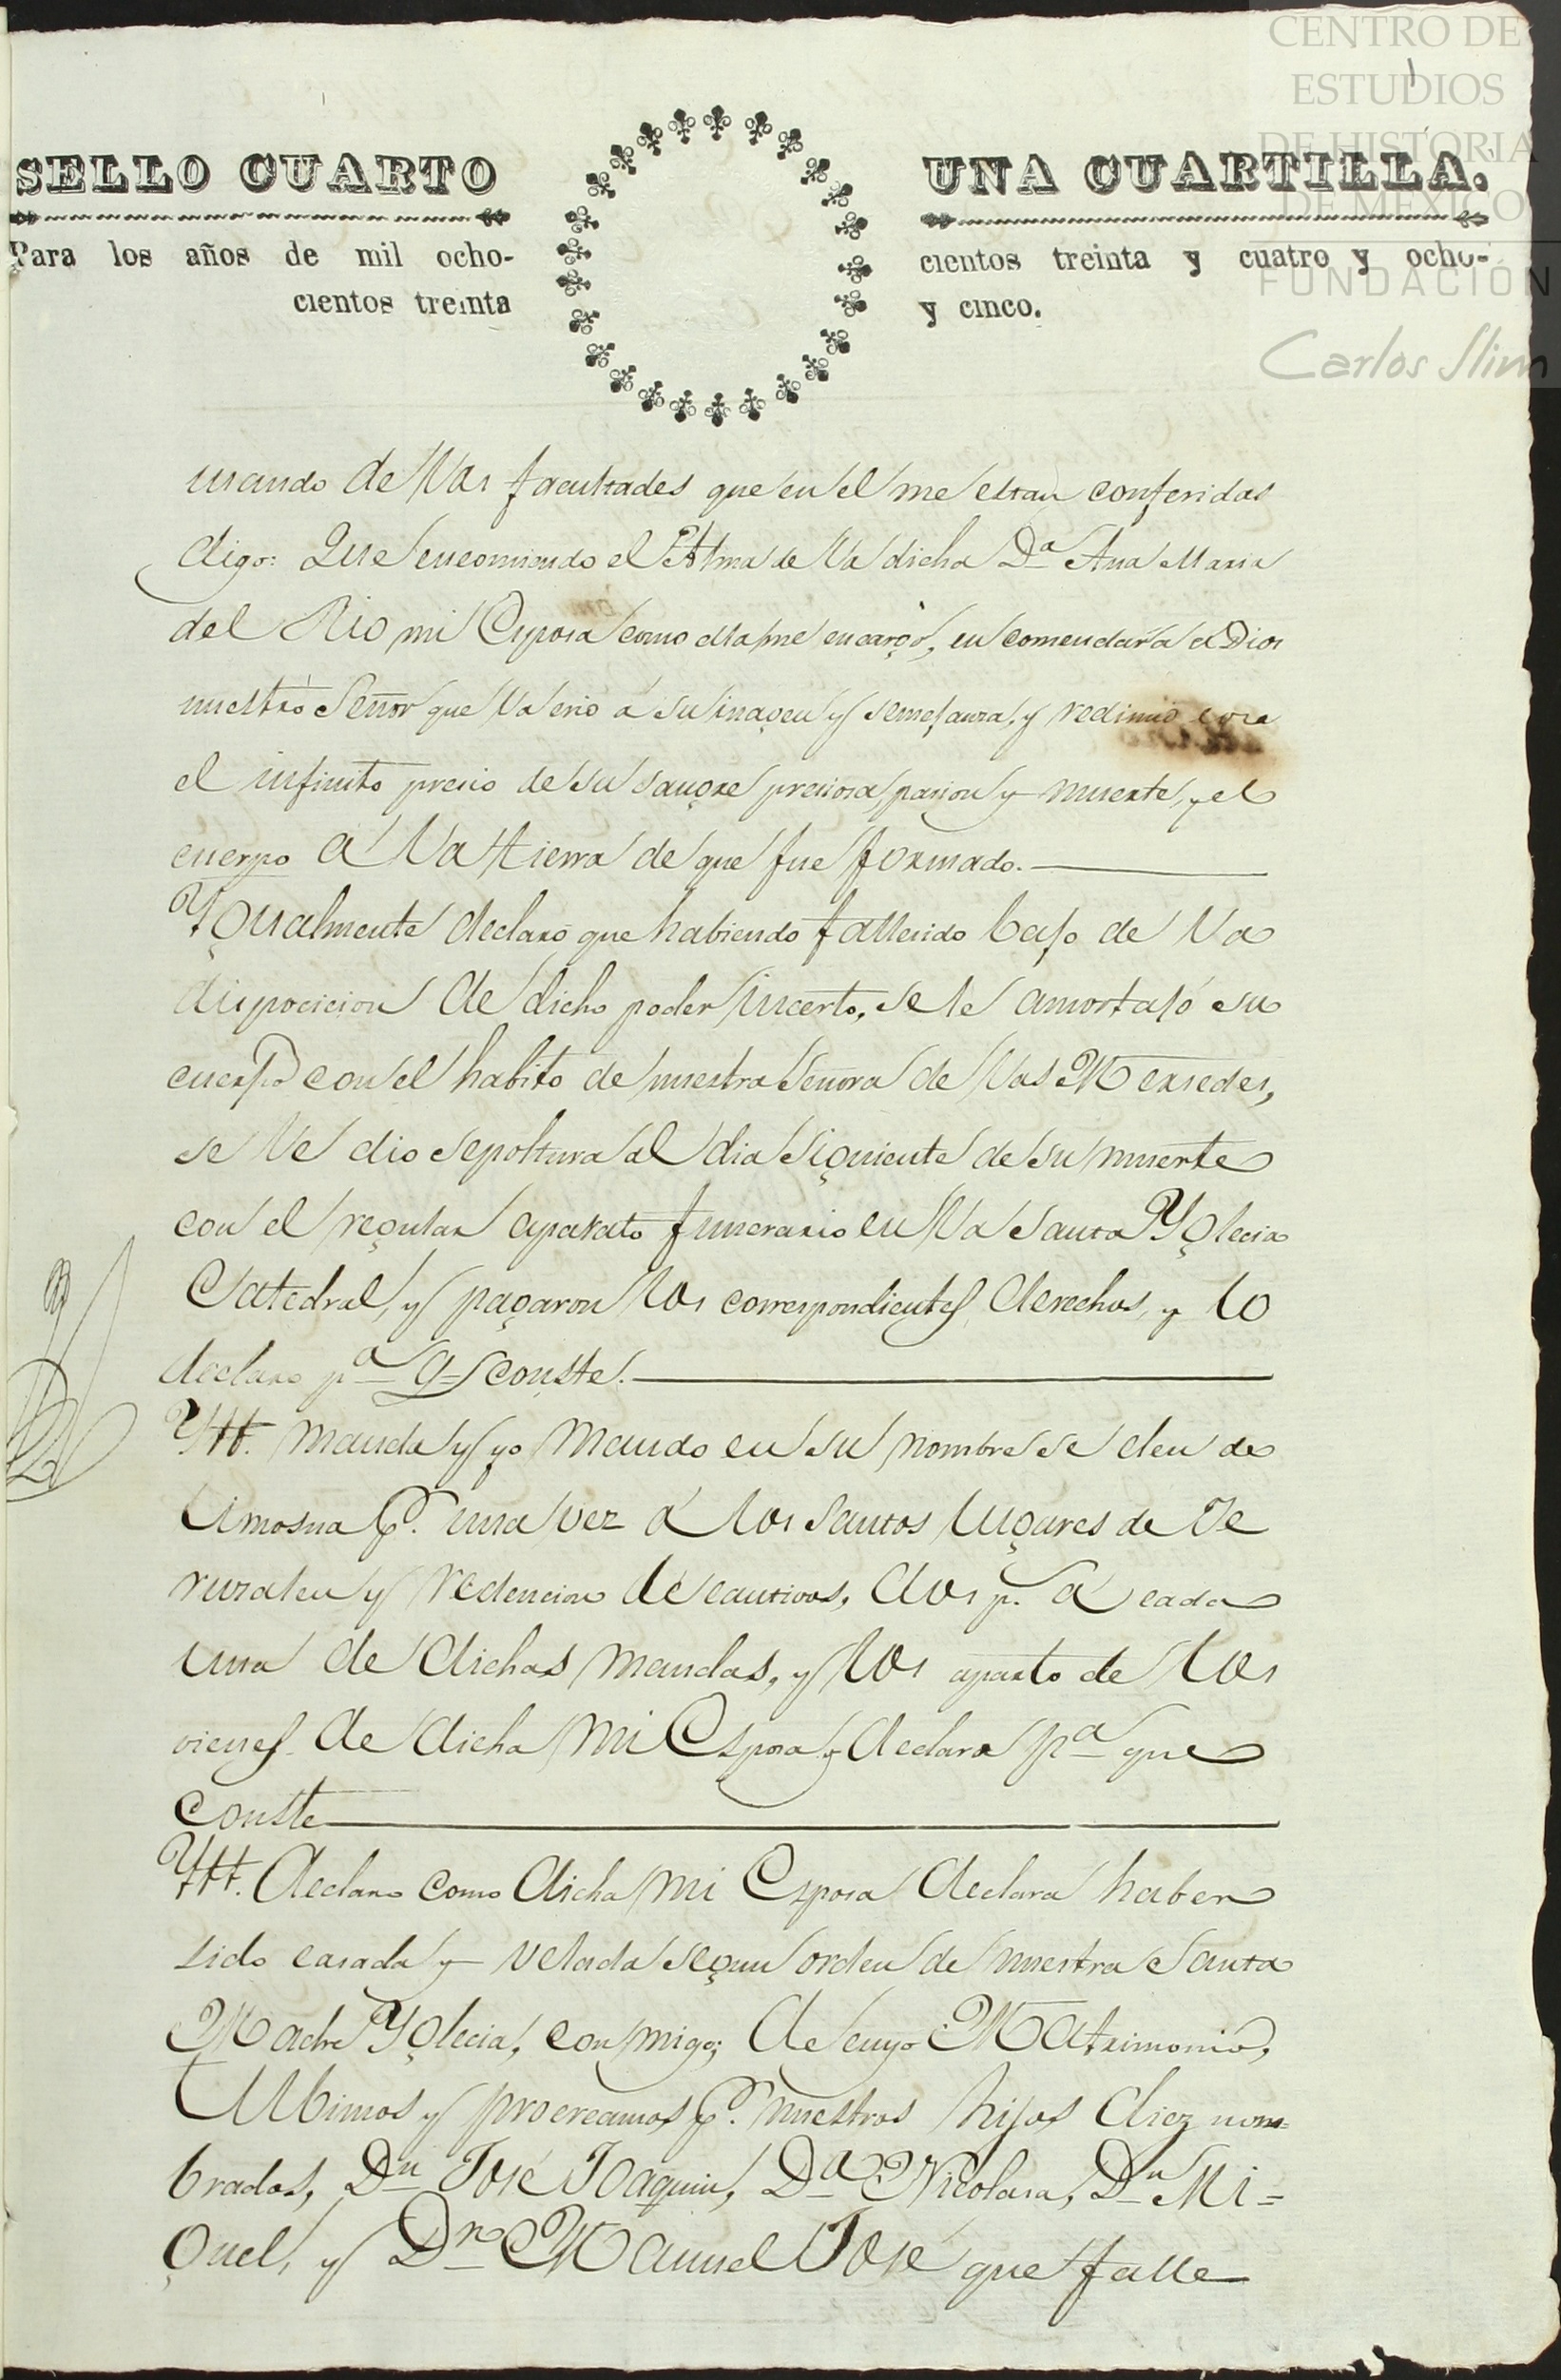 CENTRO DE
ESTUDIOS
DE HISTORIA
DE MEXICO
FUNDACIÓN
Carlos Slim
SELLO CUARTO
UNA CUARTILLA.
Para los años de mil ocho-
cientos treinta
cientos treinta y cuatro y ocho-
y cinco.
usando de las facultades que en el me estan conferidas
digo: Que encomiendo el Alma de la dicha Da. Ana Maria
del Rio mi Esposa como ella me encargó, encomendara a Dios
nuestro Señor que la crió á su imagen y semejanza, y redimió con
el infinito precio de su sangre preciosa, pacion y muerte, y el
cuerpo a la tierra de que fue formado.
Ygualmente declaro que habiendo fallecido bajo de la
disposicion de dicho poder incerto, se le amortajó su
cuerpo con el habito de nuestra Señora de las Mersedes,
se le dio sepoltura al dia siguiente de su muerte
con el regular aparato funerario en la Santa Yglecia
Catedral, y pagaron los correspondientes derechos, y lo
declaro pa. q. conste.
Ytt. manda y yo mando en su nombre se den de
limosna p. una vez á los santos lugares de Je
rusalen y redencion de cautivos, dos p. á cada
una de dichas mandas, y los aparto de los
vienes de dicha mi Esposa y declara pa. que
conste
Ytt. declaro como dicha mi Esposa declara haber
sido casada y velada segun orden de nuestra Santa
Madre Yglecia, conmigo; de cuyo Matrimonio,
tubimos y procreamos p. nuestros hijos diez nom=
brados, Dn. José Joaquin, Da. Nicolasa, Dn. Mi=
guel, y Dn. Manuel José que falle